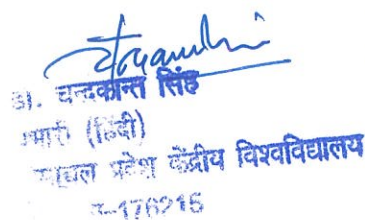 डा. चन्द्रकान्त सिंह
भारी (हिंदी)
प्रदेश केंद्रीय विश्वविद्यालय
-176215